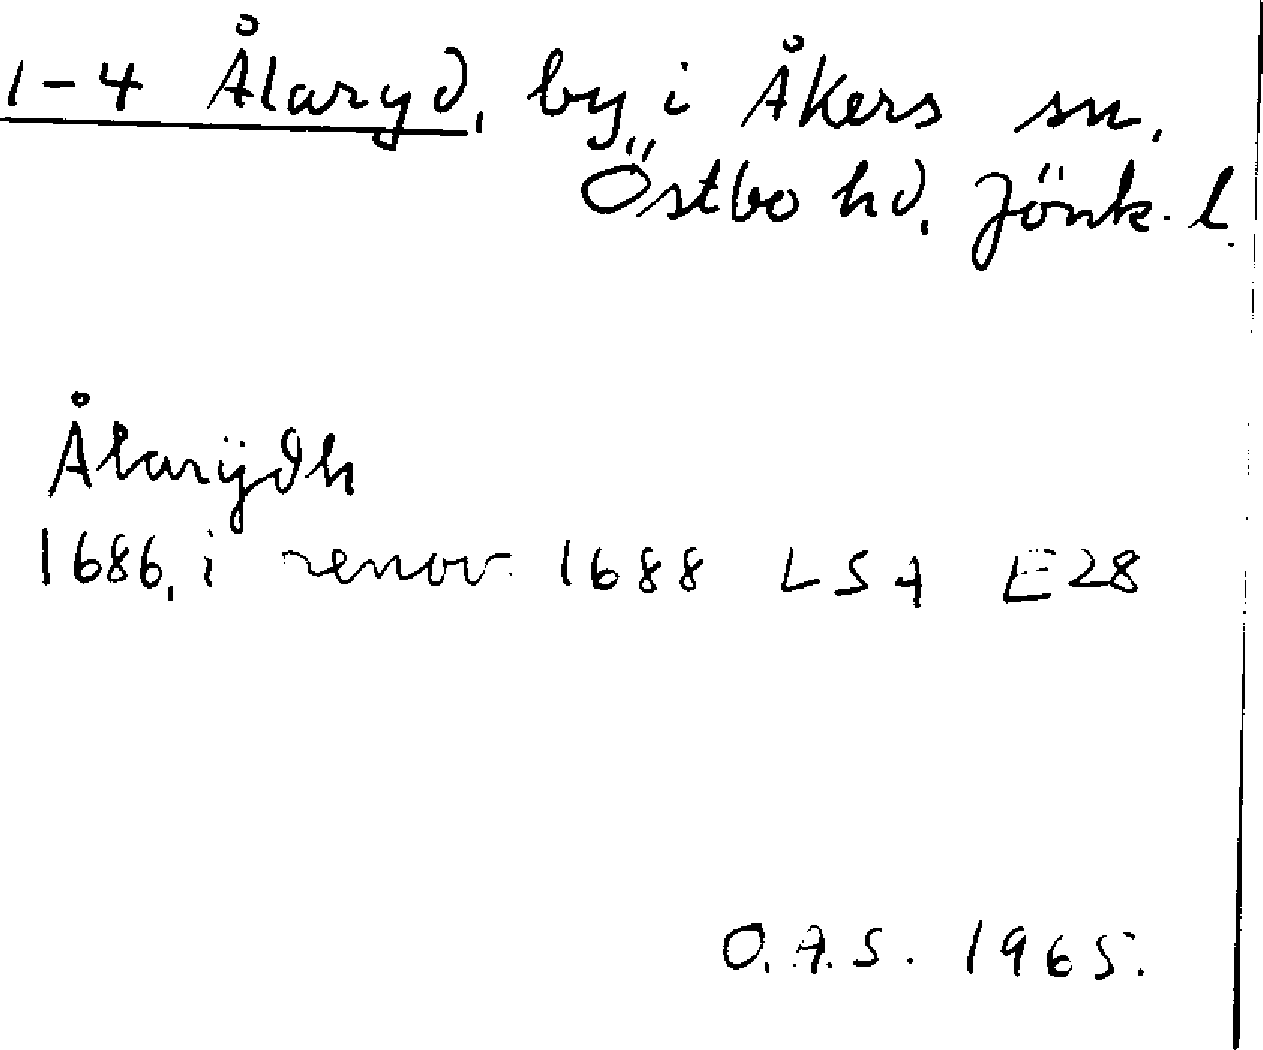 1-4 Ålaryd, by i Åkers sn,
Östbo hd, Jönk. l.
Ålarÿdh
1686, i renov. 1688 LSA E28
O.A.S. 1965.